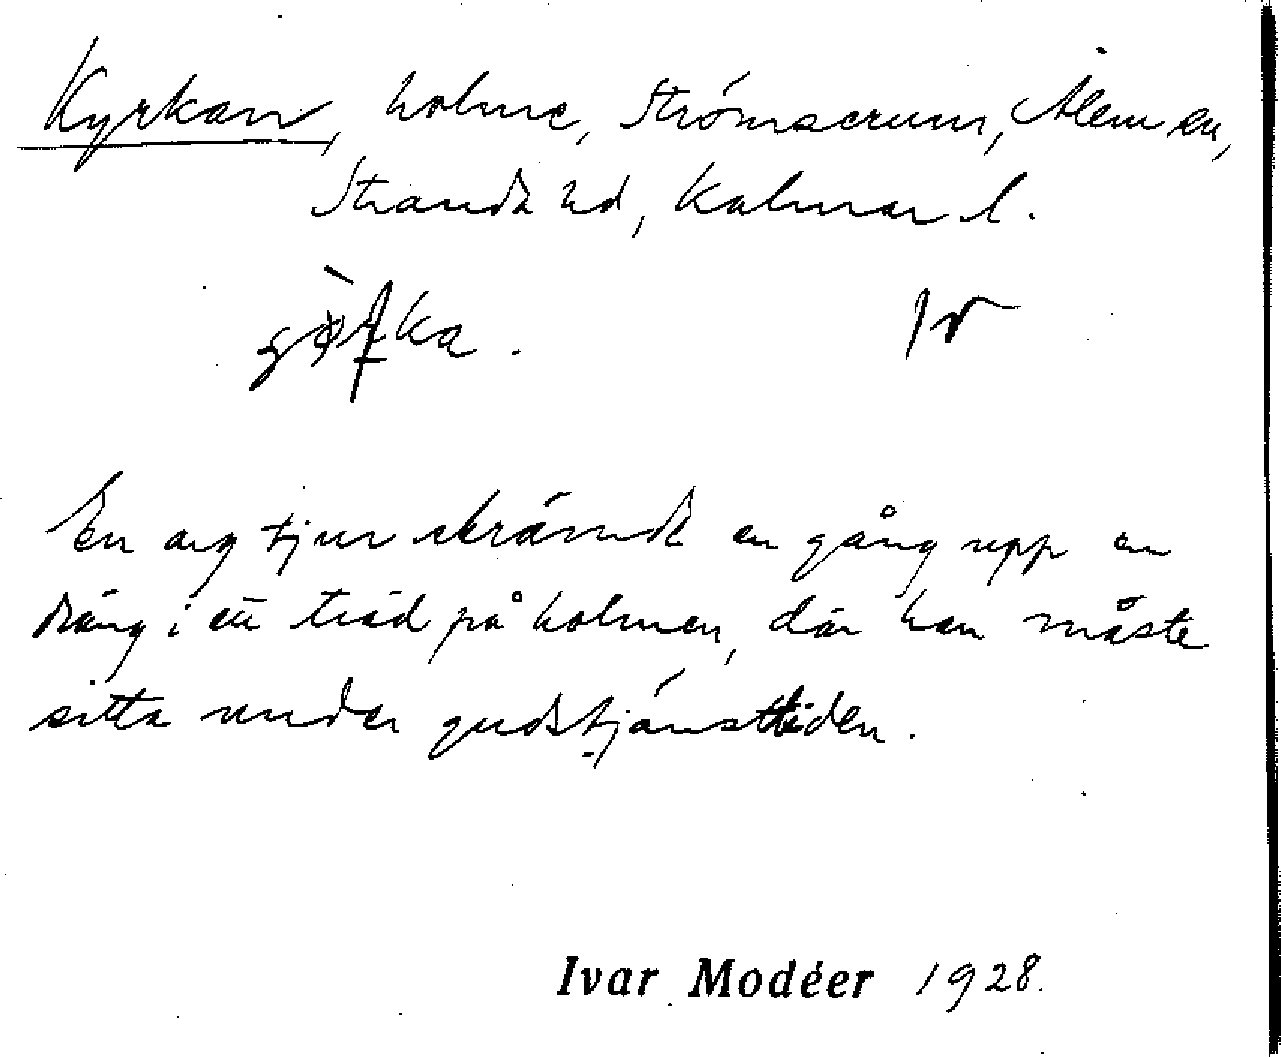 Kyrkan, holme, Strömserum, Ålem sn,
Stranda hd, Kalmar l.
En arg tjur skrämde en gång upp en
dräng i ett träd på holmen, där han måste
sitta under gudstjänsttiden.
Ivar Modéer 1928.